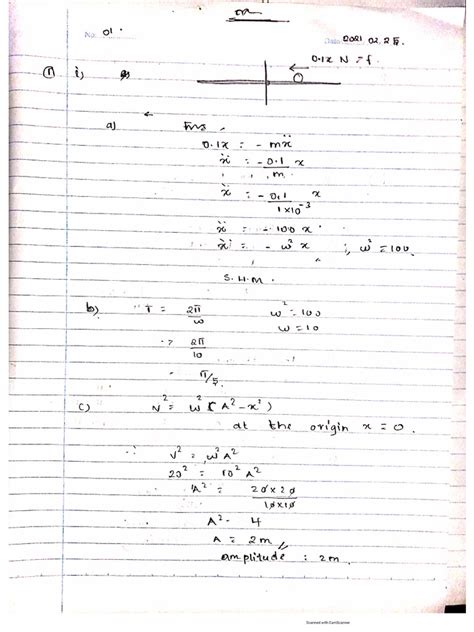 No. 01
Date 2021 02. 25.
0.1x N = f.
① i)
a) F=ma,
0.1x = - mẍ
ẍ = - 0.1 x
m
ẍ = - 0.1 x
1×10⁻³
ẍ = - 100 x
ẍ = - ω² x ; ω² = 100.
S.H.M.
b) T = 2π ω² = 100
ω ω = 10
= 2π
10
= π/5
c) V² = ω² (A² - x²)
at the origin x = 0.
∴ V² = ω² A²
20² = 10² A²
A² = 20 x 20
10 x 10
A² = 4
A = 2m
amplitude : 2m.
Scanned with CamScanner